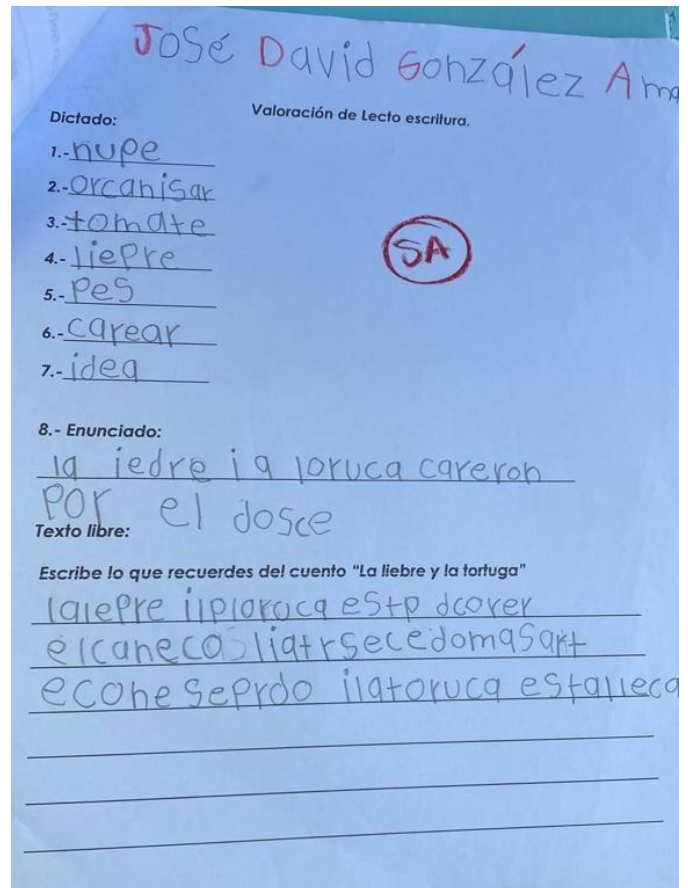 José David González Am
Valoración de Lecto escritura.
Dictado:
1.- nupe
2.- orcanisar
3.- tomate
4.- liepre
5.- pes
6.- carear
7.- idea
SA
8.- Enunciado:
la iedre i a loruca careron
por el dosce
Texto libre:
Escribe lo que recuerdes del cuento "La liebre y la tortuga"
laiepre iiploruca estp dcorer
elcaneco liatrsecedomasart
econeseprdo ilatoruca estalleca